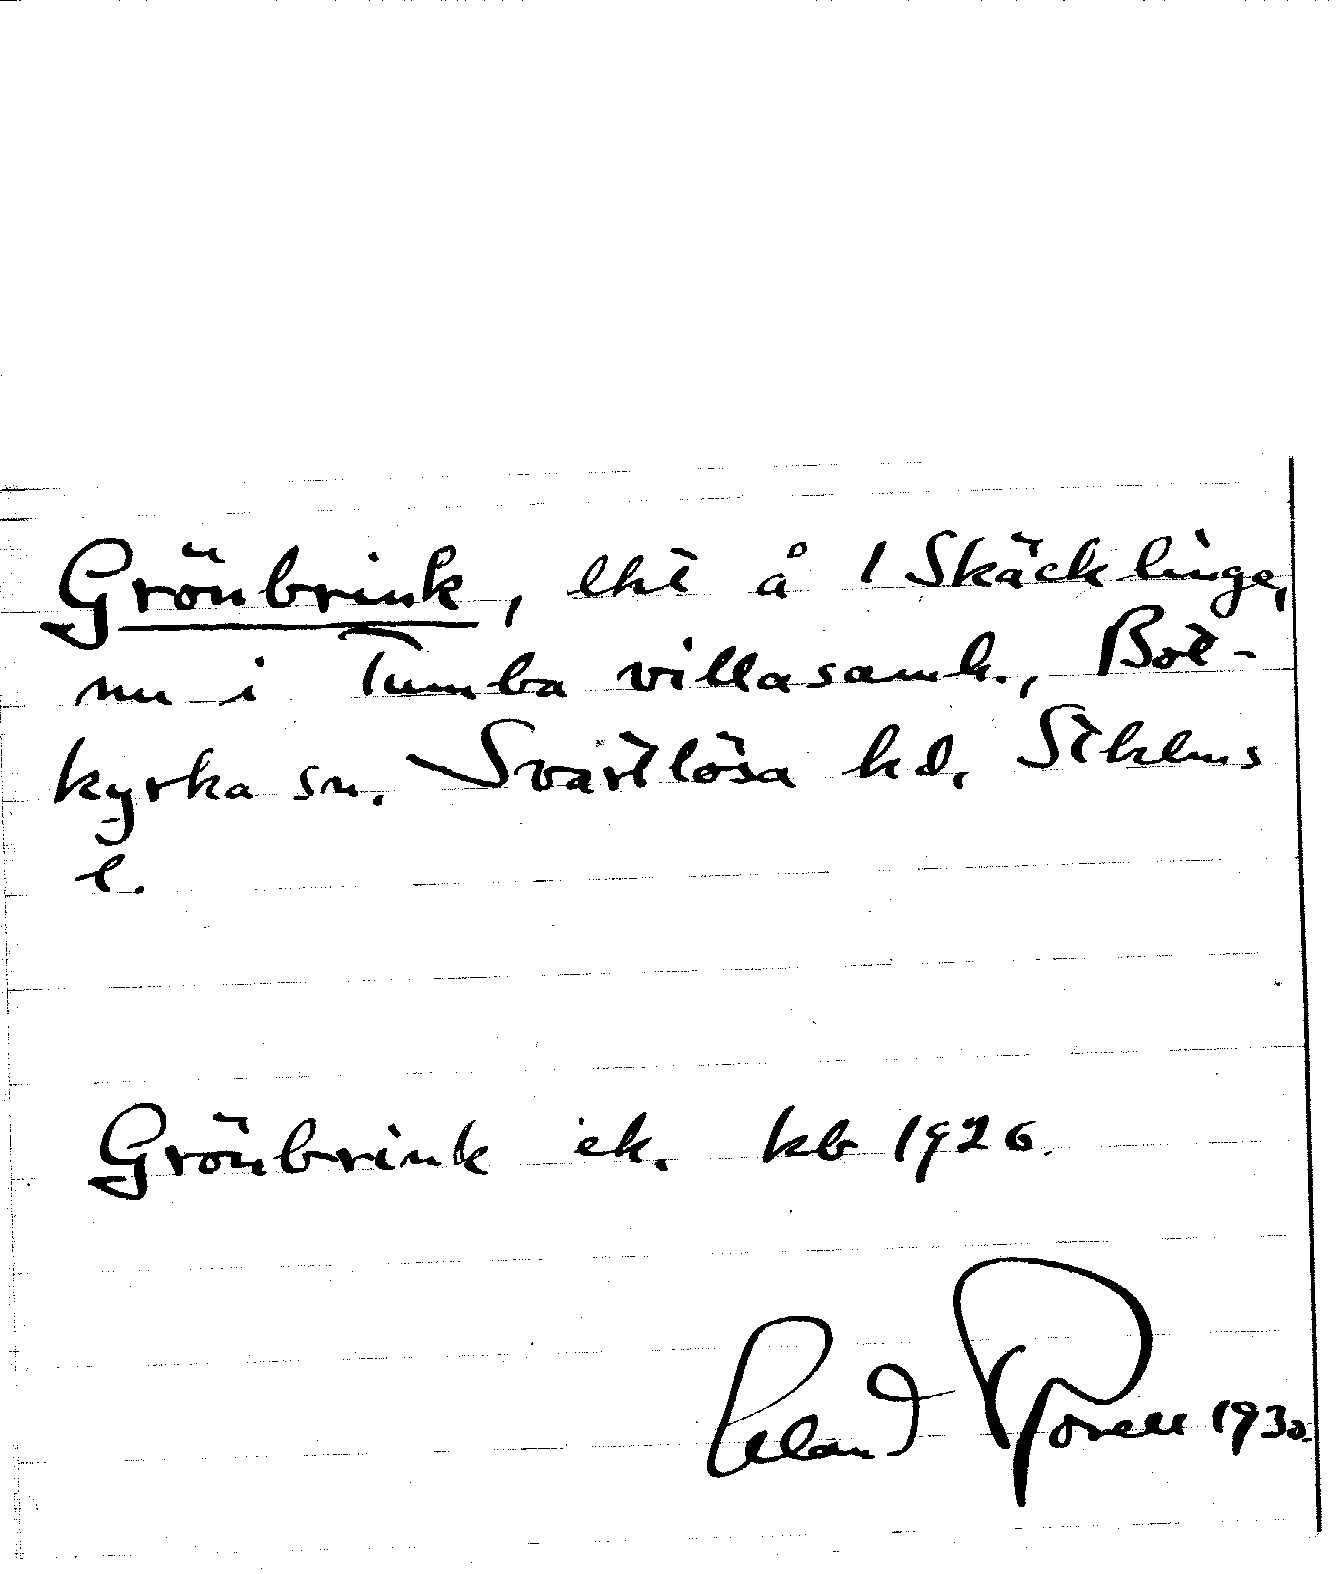 Grönbrink, lht å 1 Skäcklinge,
nu i Tumba villasamh., Bot-
kyrka sn. Svartlösa hd. Sthlms
l.
Grönbrink ek. kb 1926.
1930.